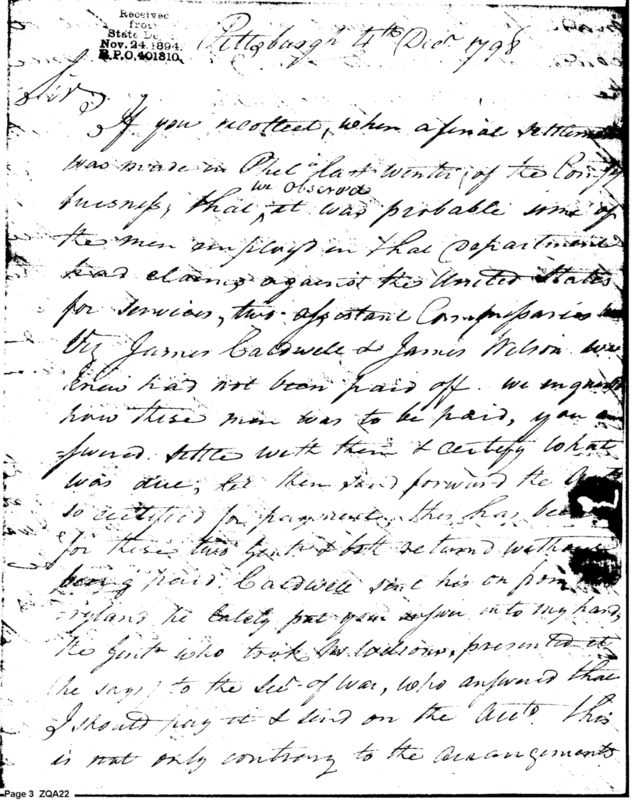 Received
from
State De
Nov. 24. 1894.
R.P.O. 401810.
Pittsburgh 4th Decr 1798
Sir
If you recollect, when a final settlem
was made in Phila last winter, of the Com
we observed
business, that it was probable some of
the men employd in that Department
had claims against the United States
for services, two assistant Commissaries
Viz James Caldwell & James Wilson we
knew had not been paid off. we enquir
how these men was to be paid, you an
swered settle with them & certify what
was due, let them send forward the
so certified for payment, this has bee
for these two Gentn & both returnd witho
being paid. Caldwell sent his on from
ryland he lately put your answer into my hand,
the Gentn who took Mr Wilsons, presented it
he says to the Secy of War, who answered that
I should pay it & send on the Acct. this
is not only contrary to the arrangements
Page 3 ZQA22